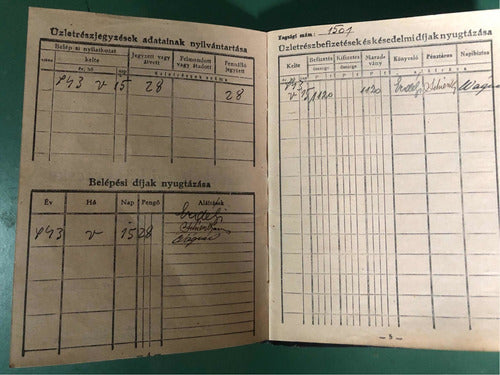 Üzletrészjegyzések adatainak nyilvántartása
Belépési nyilatkozat
Jegyzett vagy átvett
Felmondott vagy átadott
Fennálló jegyzett
kelte
943 V 15 28 28
Belépési díjak nyugtázása
Év Hó Nap Pengő Aláírások
943 V 15 28 Erdélyi
Tagsági szám: 1501
Üzletrészbefizetések és késedelmi díjak nyugtázása
Kelte Befizetés összege Kifizetés összege Maradvány Könyvelő Pénztáros Napibiztos
943
V 15 1120 1120 Erdélyi
— 3 —